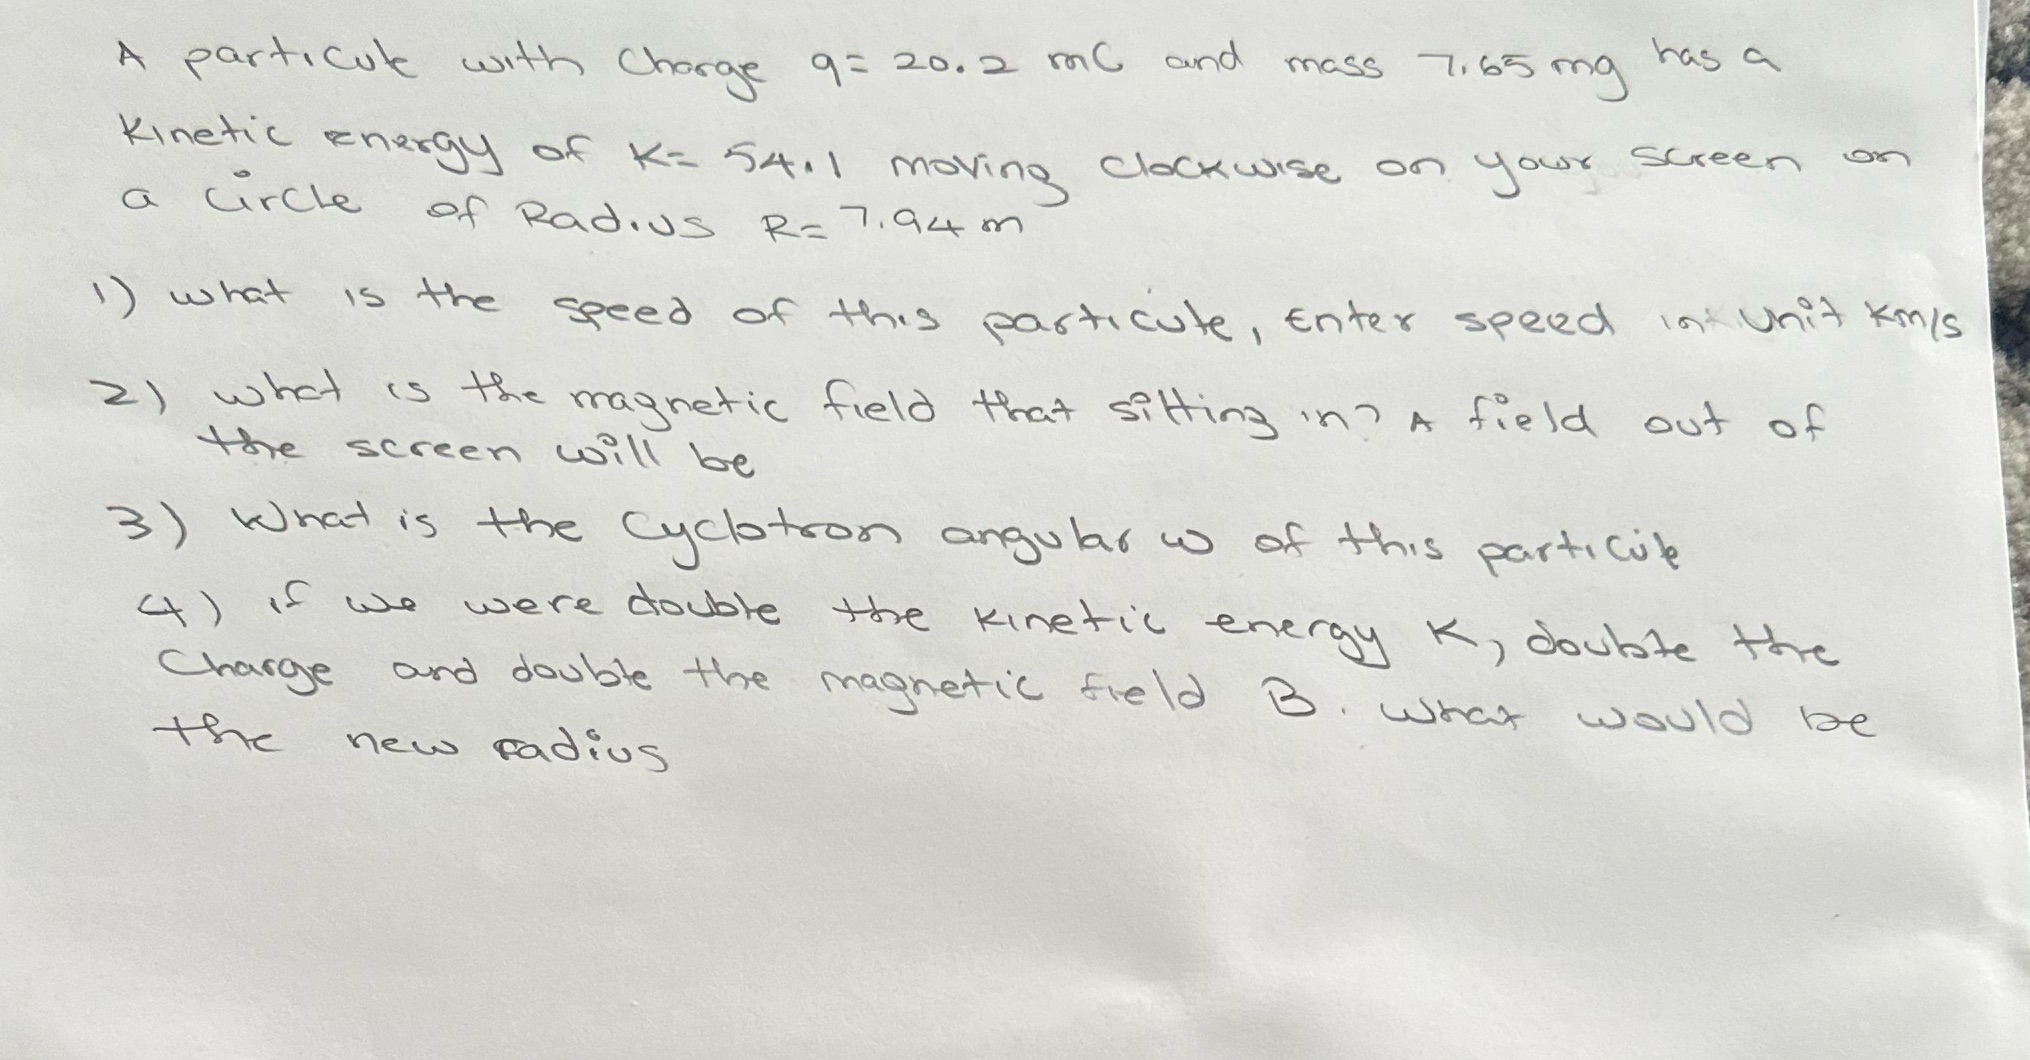 A particule with Charge q= 20.2 mC and mass 7.65 mg has a
Kinetic energy of K= 54.1 moving clockwise on your screen on
a circle of Radius R= 7.94 m
1) what is the speed of this particule, Enter speed in unit Km/s
2) what is the magnetic field that sitting in? A field out of
the screen will be
3) What is the cyclotron angular ω of this particule
4) if we were double the kinetic energy K, double the
Charge and double the magnetic field B. what would be
the new radius